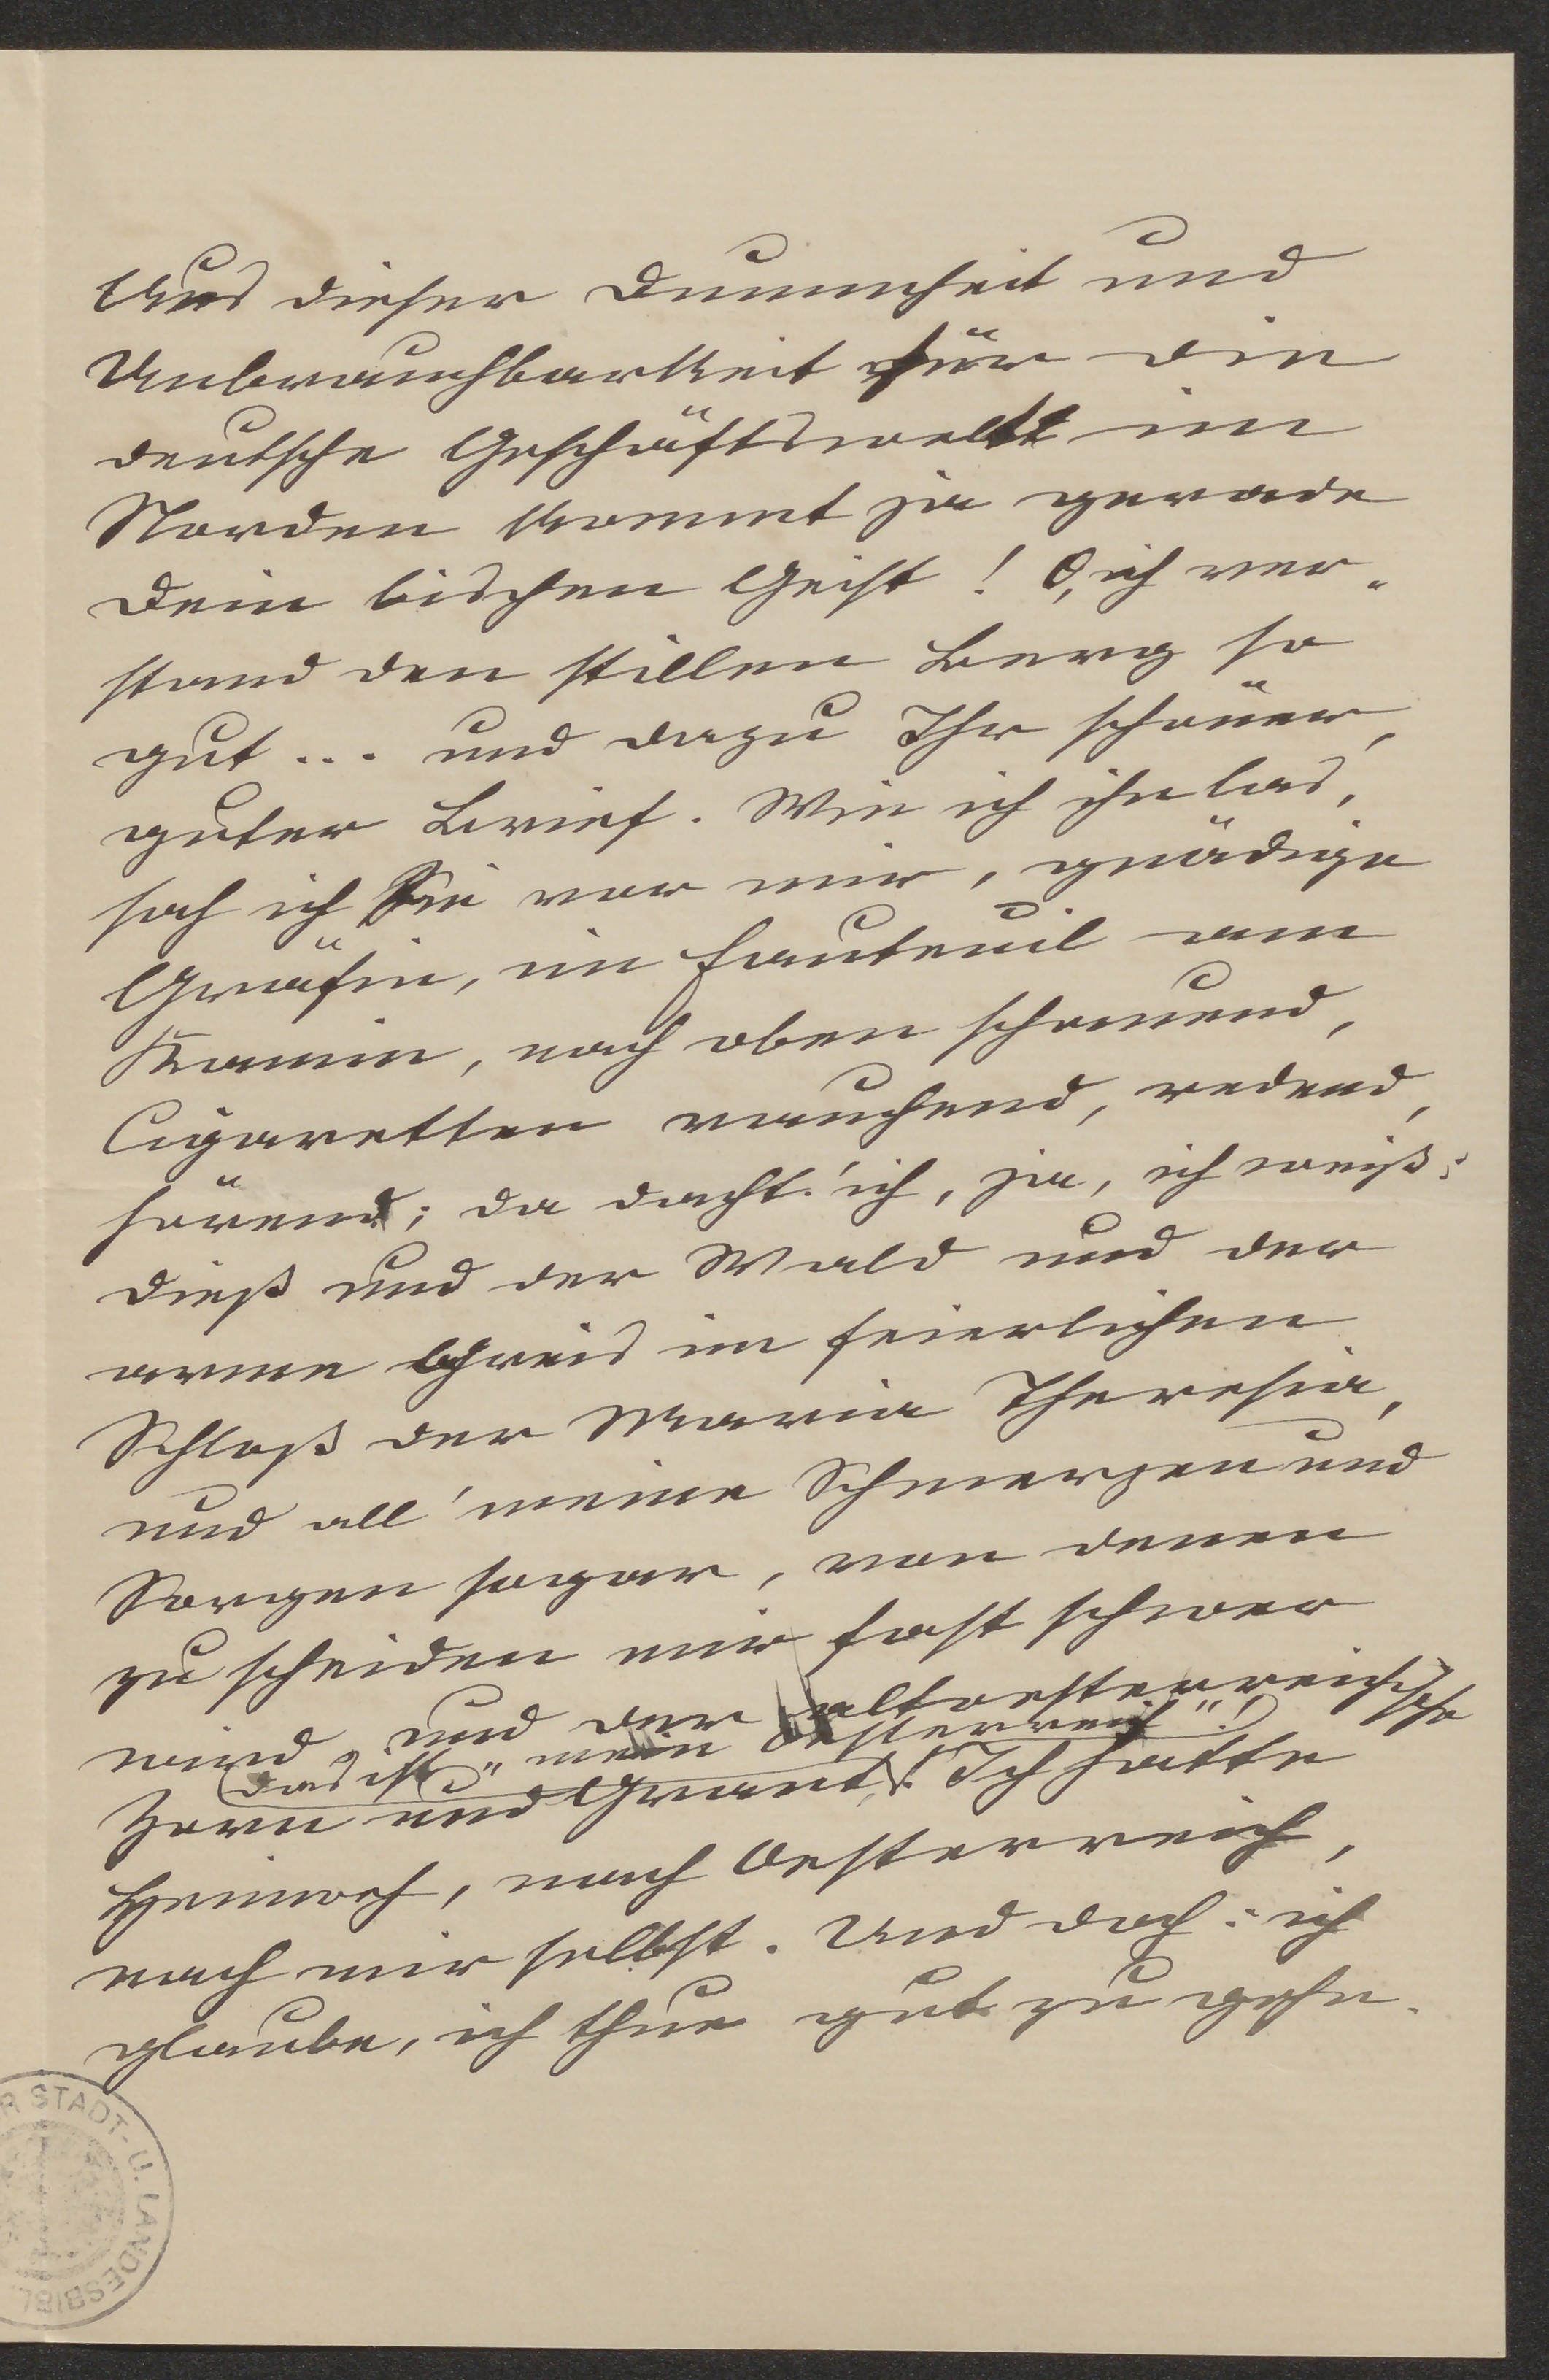 Aus dieser Dummheit und
Unbrauchbarkeit für die
deutsche Geschäftswelt im
Norden kommt ja gerade
Dein bischen Geist! O, ich ver-
stand den stillen Berg so
gut ... und dazu Ihr schöner,
guter Brief. Wie ich ihn las,
sah ich Sie vor mir, gnädige
Gräfin, im Fauteuil am
Kamin, nach oben schauend,
Cigaretten rauchend, redend,
hörend; da dacht' ich, ja, ich weiß:
dieß und der Wald und der
arme Greis im feierlichen
Schloß der Maria Theresia,
und all' meine Schmerzen und
Sorgen sogar, von denen
zu scheiden mir fast schwer
wird und der altoesterreichische
das ist "mein Oesterreich"!
Zorn und Grant. Ich hatte
Heimweh, nach Oesterreich,
nach mir selbst. Und doch: ich
glaube, ich thue gut zu gehn.
R STADT- U. LANDESBIBL